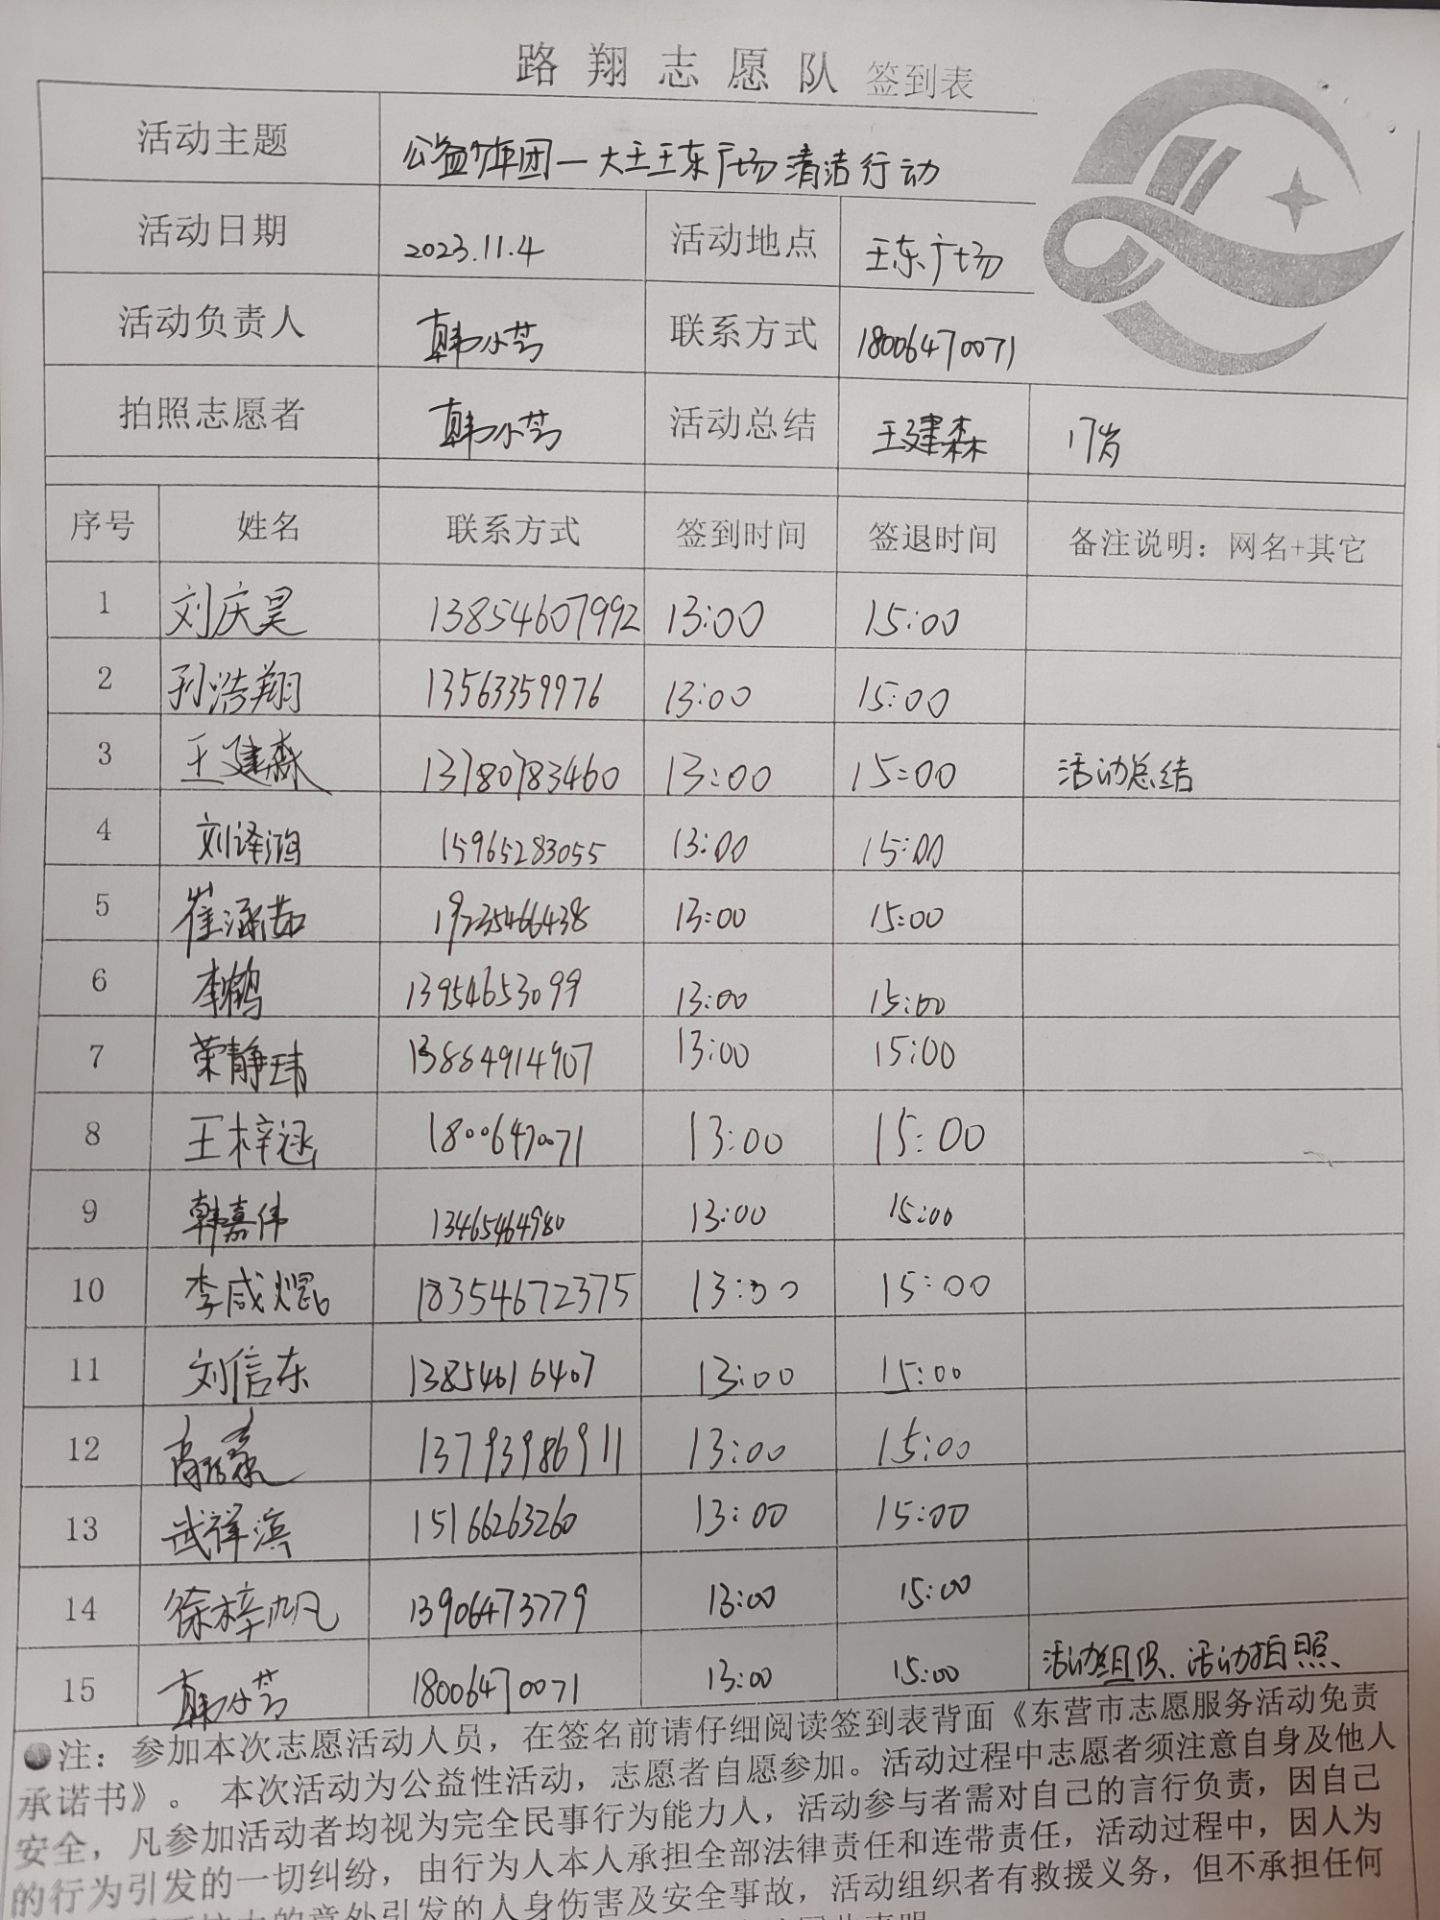 路翔志愿队 签到表
活动主题 公益少年团—大王王东广场清洁行动
活动日期 2023.11.4 活动地点 王东广场
活动负责人 韩小芳 联系方式 18006470071
拍照志愿者 韩小芳 活动总结 王建森 17岁
序号 姓名 联系方式 签到时间 签退时间 备注说明：网名+其它
1 刘庆昊 13854607992 13:00 15:00
2 孙浩翔 13563359976 13:00 15:00
3 王建森 13780783460 13:00 15:00 活动总结
4 刘译鸿 15965283055 13:00 15:00
5 崔涵茹 19235466438 13:00 15:00
6 李鹤 13954653099 13:00 15:00
7 荣静玮 13864914907 13:00 15:00
8 王梓涵 18006470071 13:00 15:00
9 韩嘉伟 13465464980 13:00 15:00
10 李咸熠 18354672375 13:00 15:00
11 刘信东 13854616407 13:00 15:00
12 13793986911 13:00 15:00
13 武祥滨 15166263260 13:00 15:00
14 徐梓帆 13906473779 13:00 15:00
15 韩小芳 18006470071 13:00 15:00 活动组织、活动拍照
注：参加本次志愿活动人员，在签名前请仔细阅读签到表背面《东营市志愿服务活动免责
承诺书》。 本次活动为公益性活动，志愿者自愿参加。活动过程中志愿者须注意自身及他人
安全，凡参加活动者均视为完全民事行为能力人，活动参与者需对自己的言行负责，因自己
的行为引发的一切纠纷，由行为人本人承担全部法律责任和连带责任，活动过程中，因人为
的意外引发的人身伤害及安全事故，活动组织者有救援义务，但不承担任何